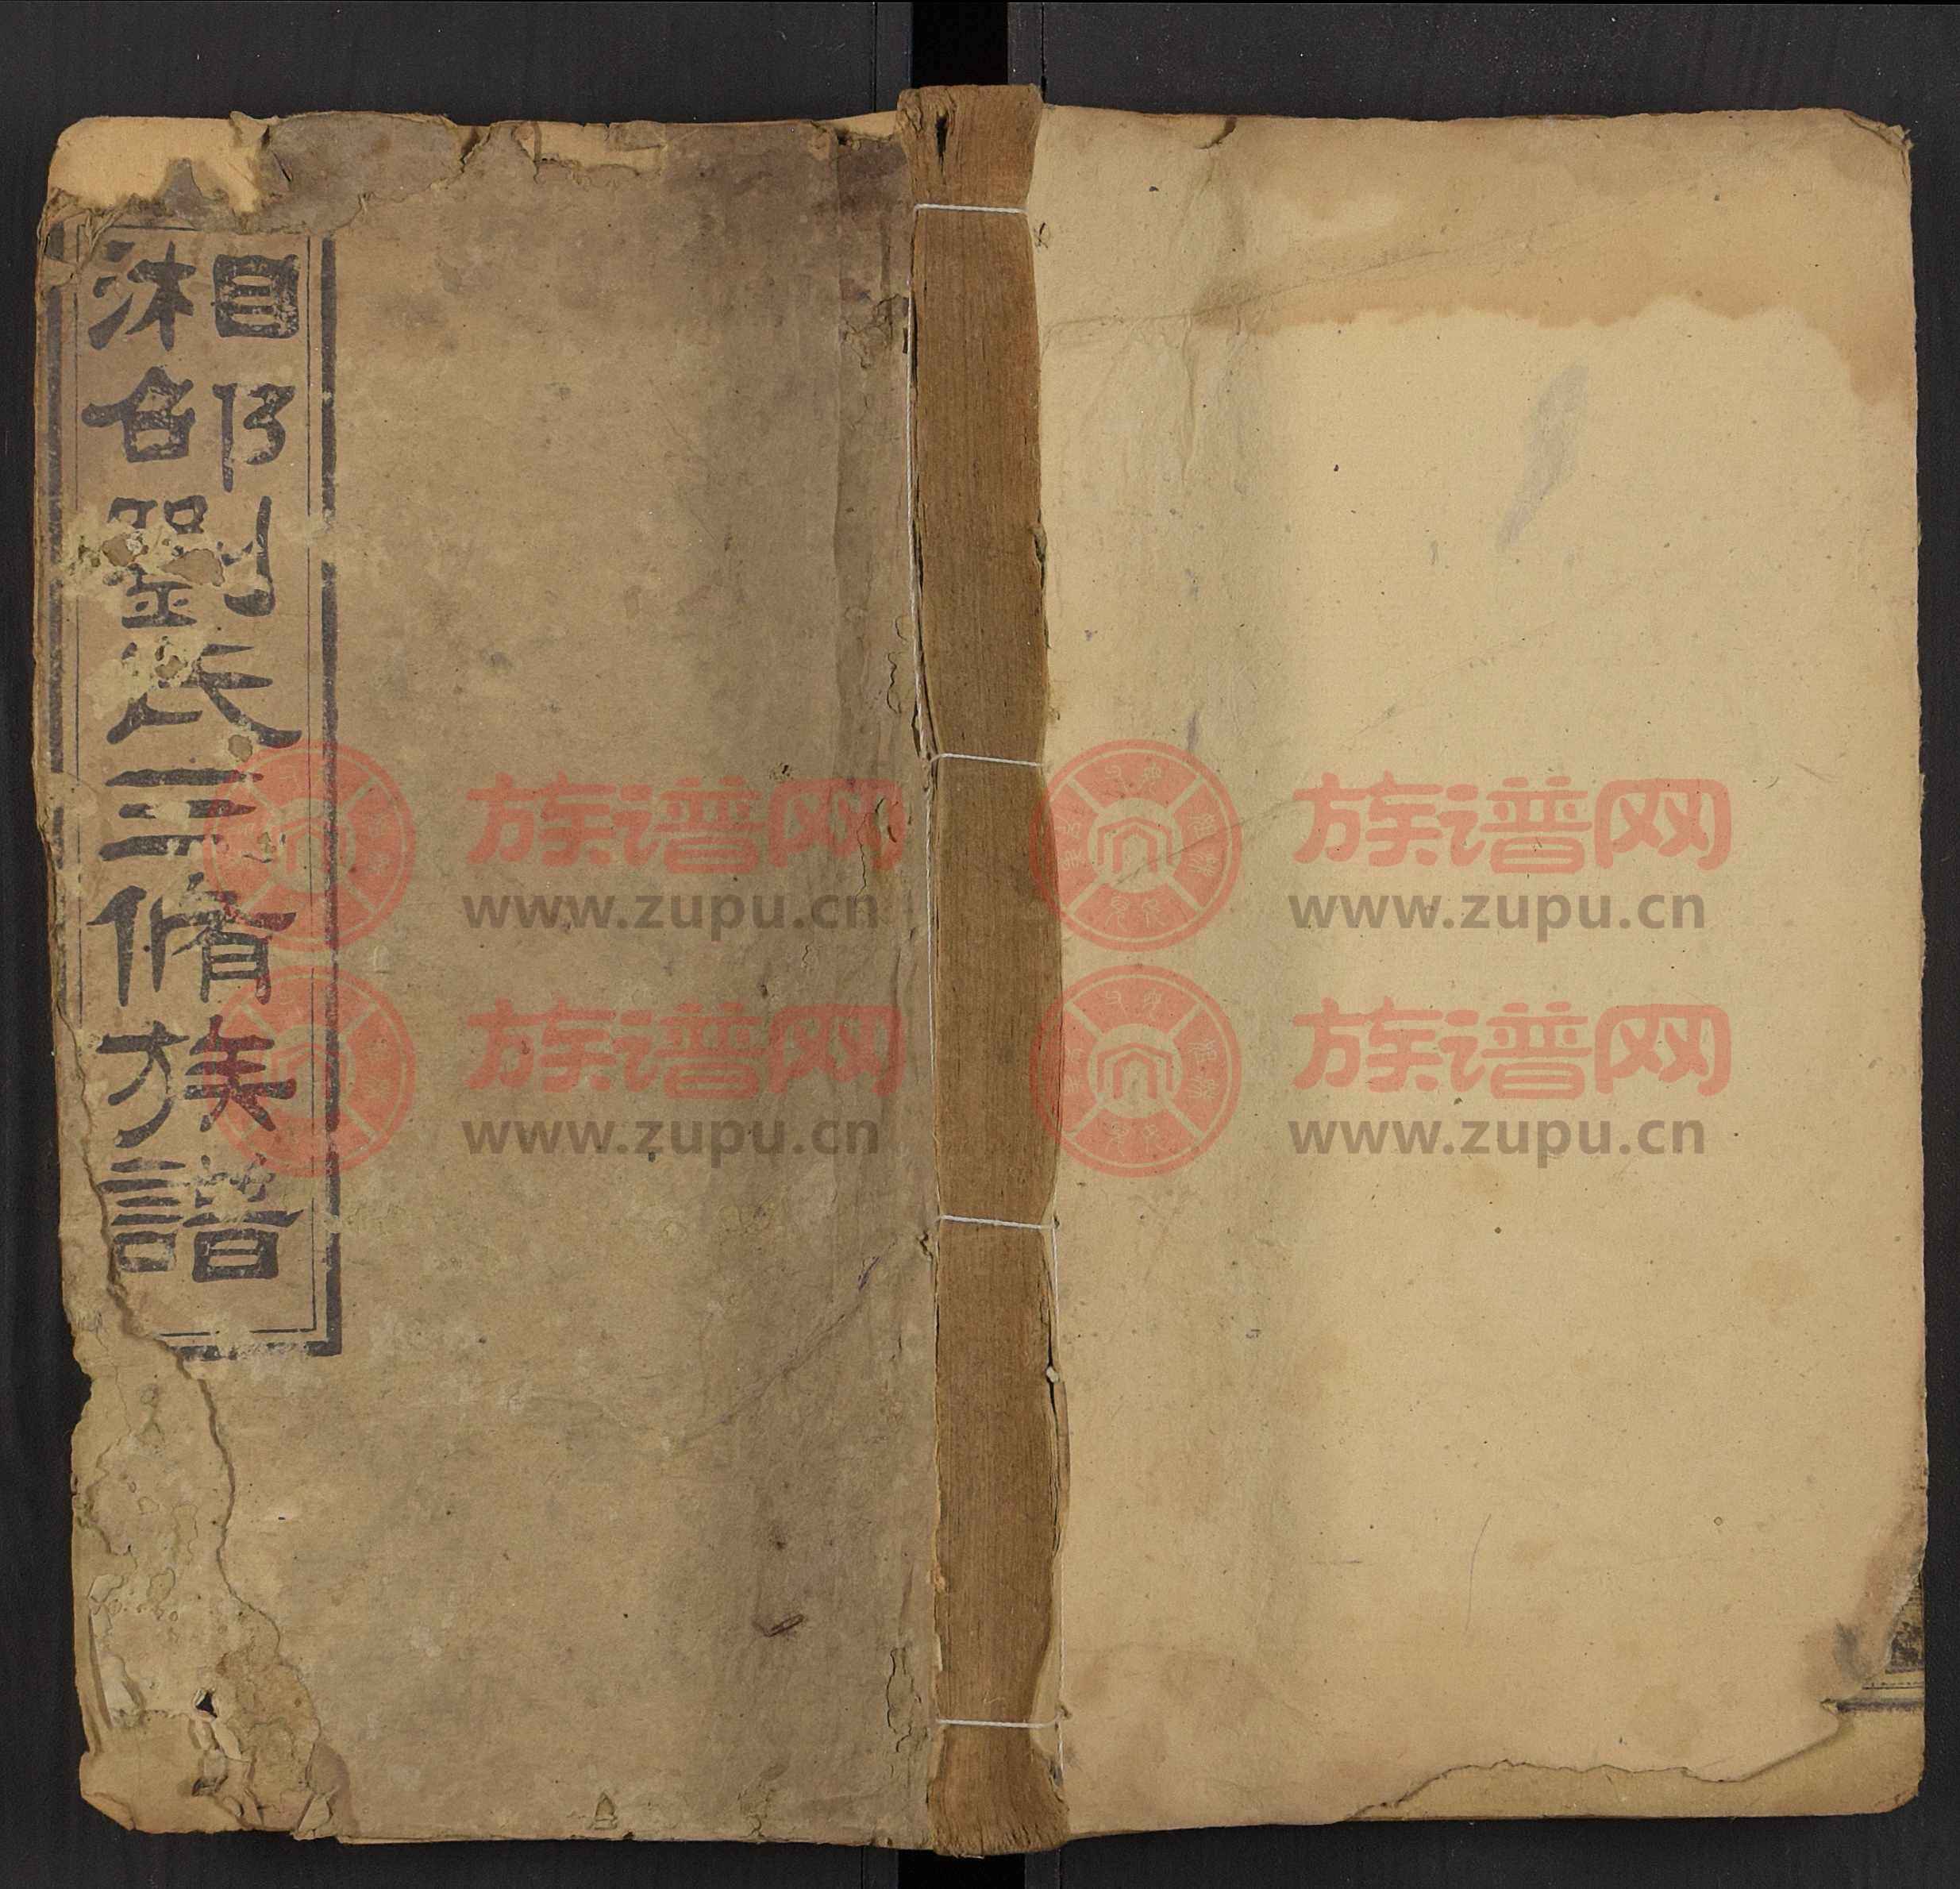 湘邵劉氏三脩族譜
族谱网
www.zupu.cn
族谱网
www.zupu.cn
族谱网
www.zupu.cn
族谱网
www.zupu.cn